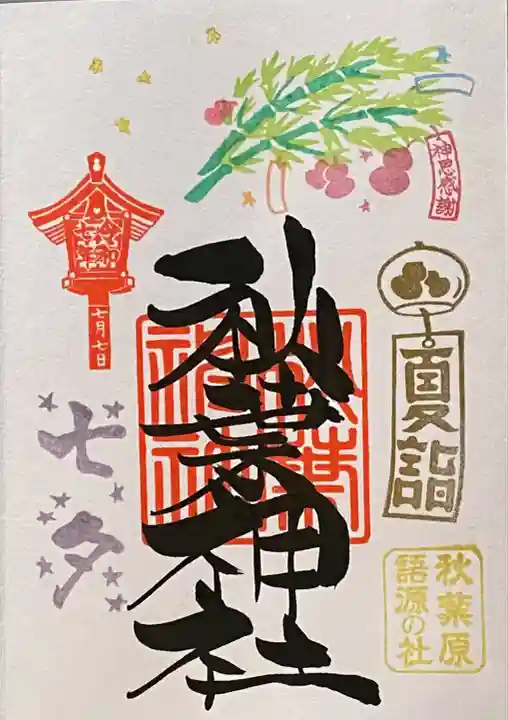 神恩感謝
令和
七年
七月七日
秋葉神社
秋葉
神社
夏詣
七夕
秋葉原
語源の社